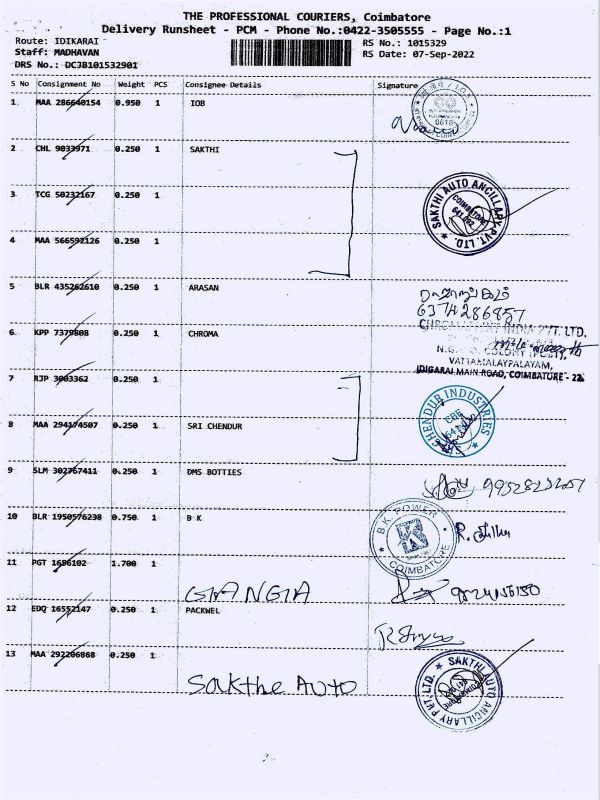 THE PROFESSIONAL COURIERS, Coimbatore
Delivery Runsheet - PCM - Phone No.:0422-3505555 - Page No.:1
Route: IDIKARAI
RS No.: 1015329
Staff: MADHAVAN
RS Date: 07-Sep-2022
DRS No.: DCJB101532901
S No Consignment No Weight PCS Consignee Details Signature
1 MAA 286640154 0.950 1 IOB
2 CHL 9033971 0.250 1 SAKTHI
3 TCG 50232167 0.250 1
SAKTHI AUTO ANCILLARY PVT. LTD.
COIMBATORE
641 092
4 MAA 566592126 0.250 1
5 BLR 435262610 0.250 1 ARASAN
6374286857
6 KPP 7379808 0.250 1 CHROMA
INDIA PVT. LTD.
VATTAMALAYPALAYAM,
IDIGARAI MAIN ROAD, COIMBATORE - 22
7 RJP 3003362 0.250 1
CHENDUR INDUSTRIES
8 MAA 294174507 0.250 1 SRI CHENDUR
9 SLM 302767411 0.250 1 DMS BOTTIES
10 BLR 1950576238 0.750 1 B K
B.K. POWER
COIMBATORE
11 PGT 1686102 1.700 1
12 EDQ 16552147 0.250 1 PACKWEL
13 MAA 292206868 0.250 1
Sakthe Auto
SAKTHI AUTO ANCILLARY PVT. LTD.